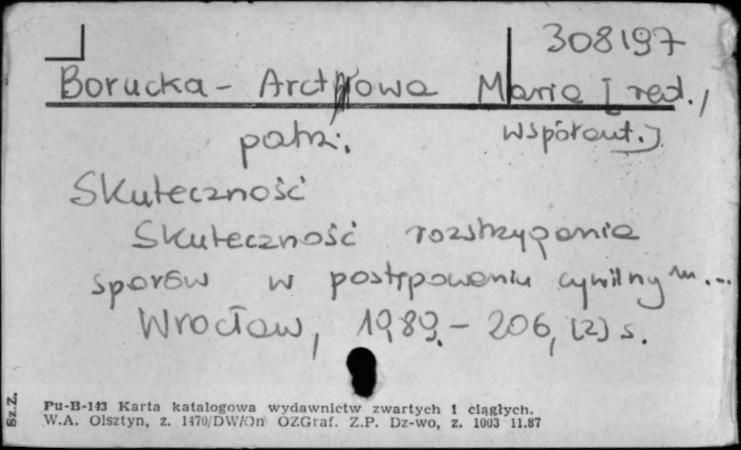 308197
Borucka-Arctowa Maria [red.,
współaut.]
patrz:
Skuteczność
Skuteczność rozstrzygania
sporów w postępowaniu cywilnym...
Wrocław, 1989.- 206, [2] s.
Sz.Z.
Pu-B-143 Karta katalogowa wydawnictw zwartych i ciągłych.
W.A. Olsztyn, z. 1470/DW/On OZGraf. Z.P. Dz-wo, z. 1003 11.87